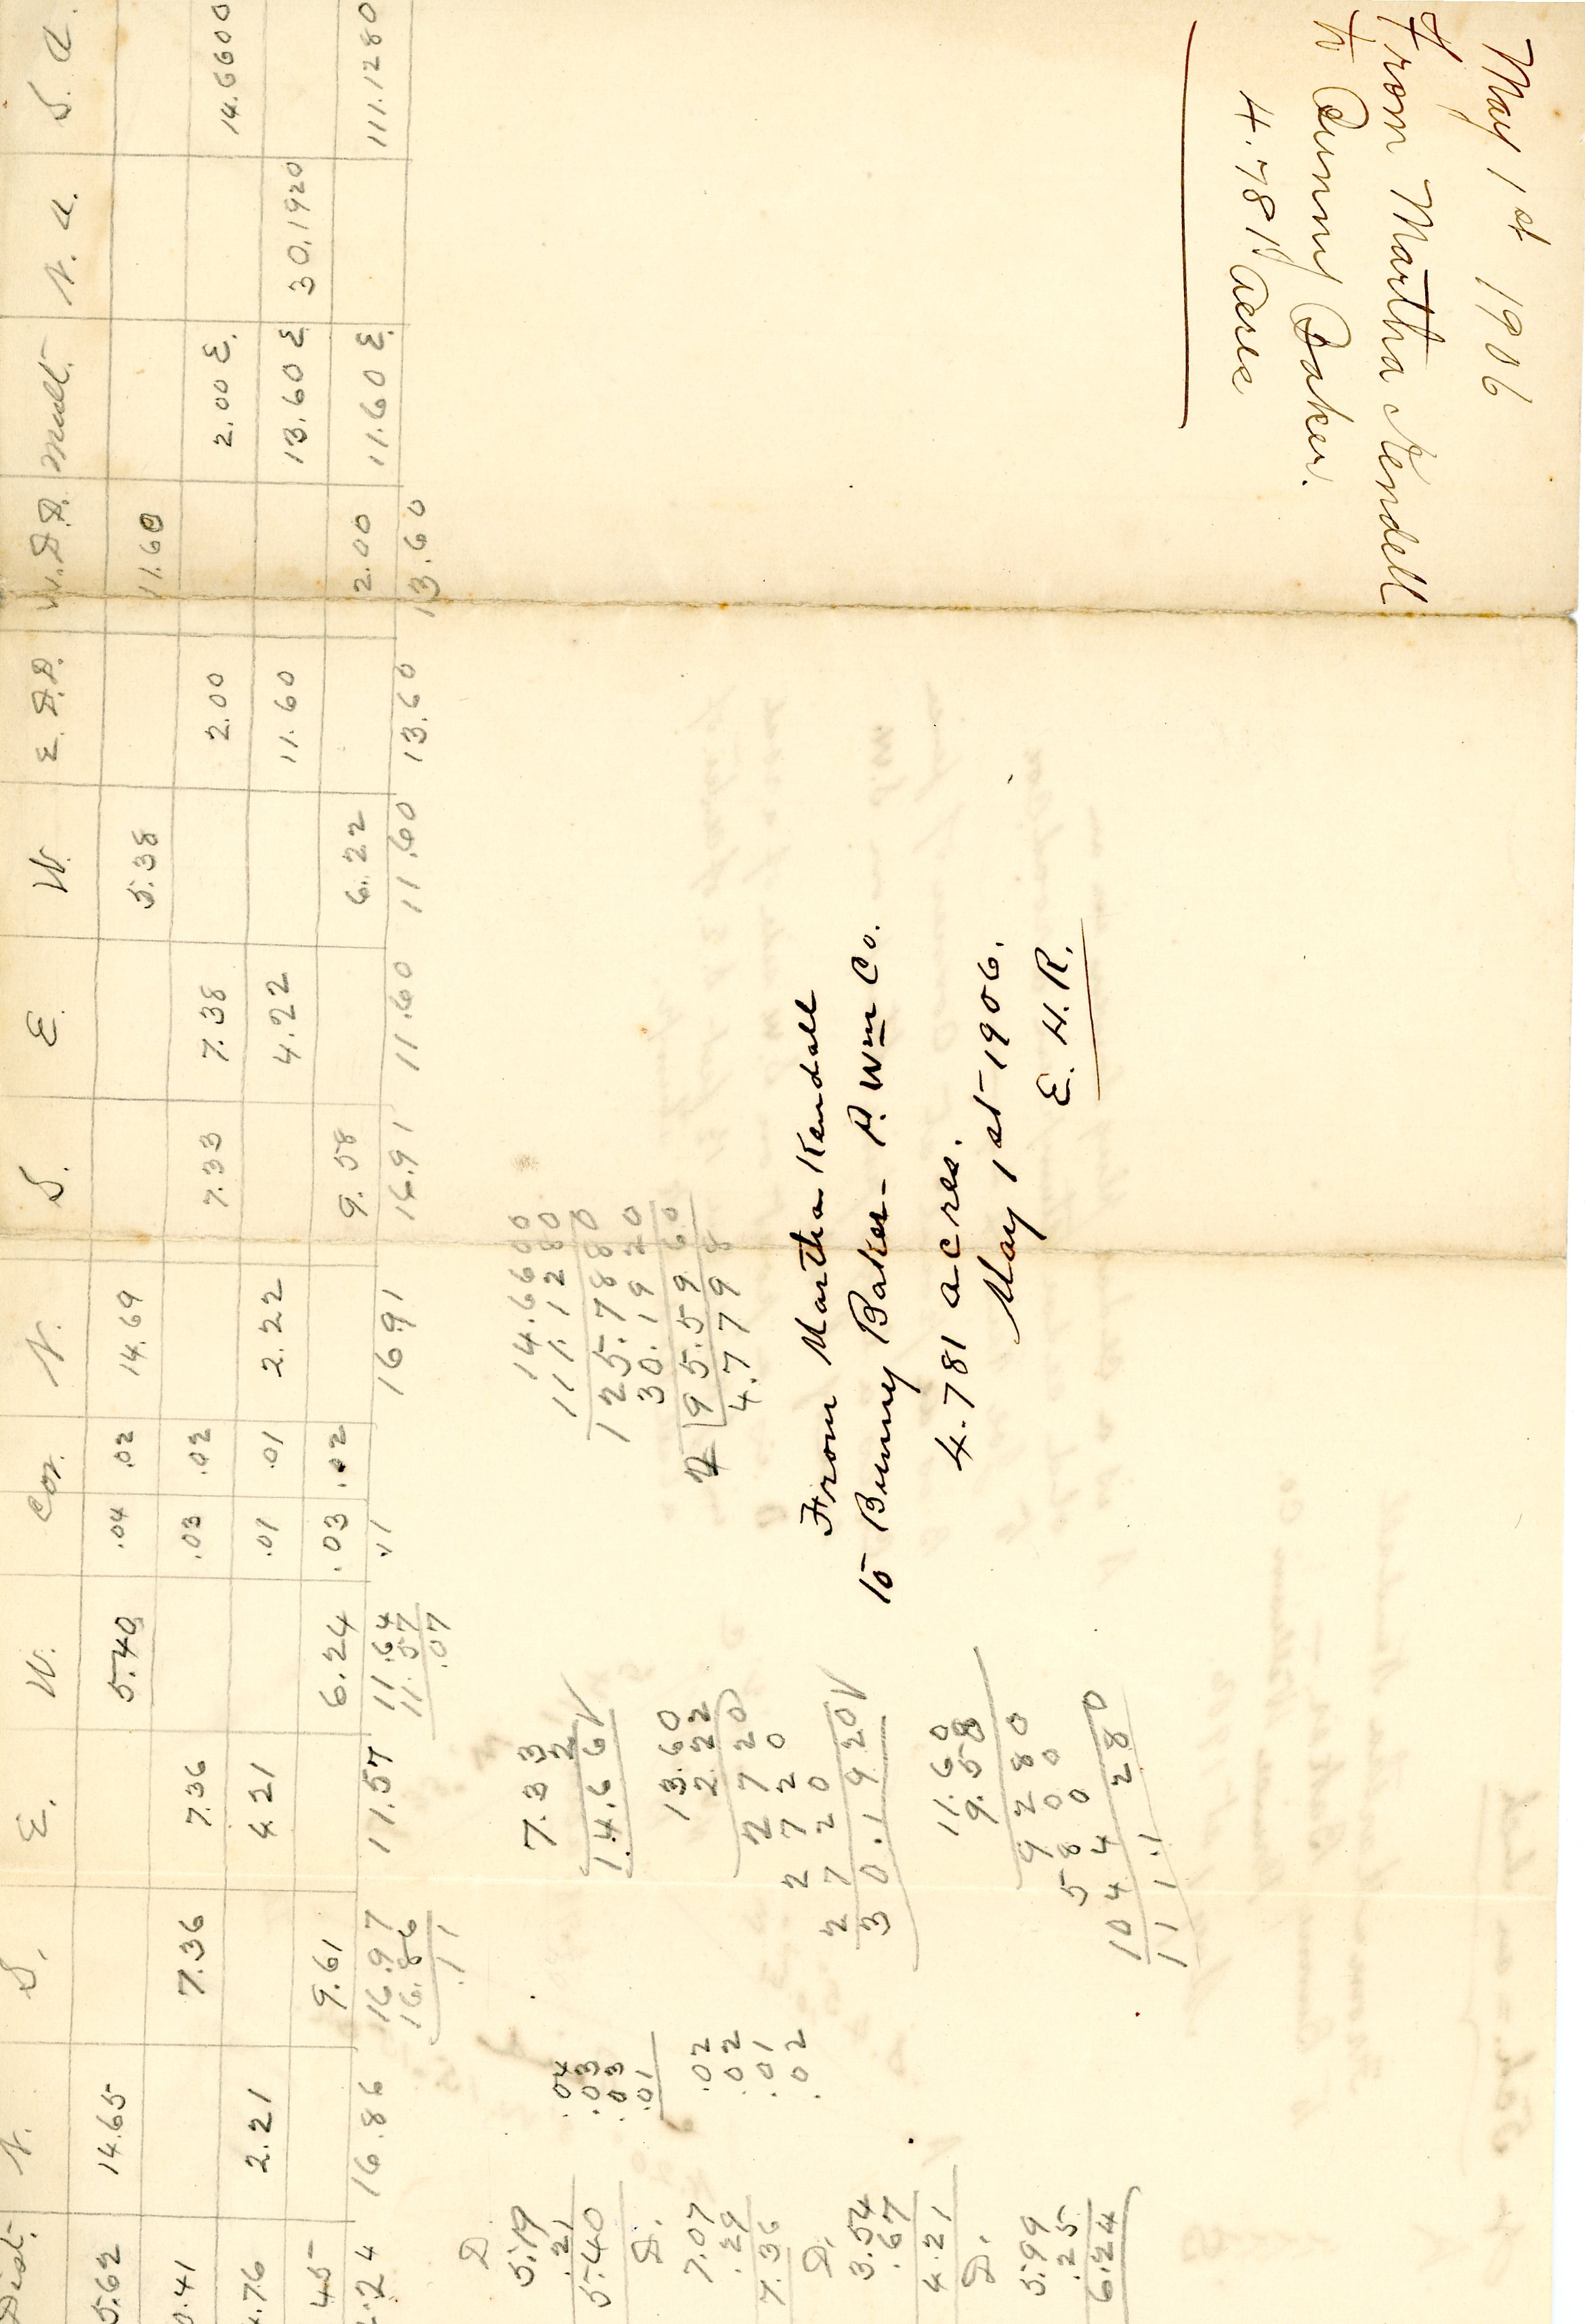 May 1st 1906
From Martha Kendell
to Bunny Baker.
4.781 Acres
Dist. N. S. E. W. Cor. N. S. E. W. E.D.D. W.D.D. Mult. N.A. S.A.
5.62 14.65 5.40 .04 .02 14.69 5.38 11.60
.41 7.36 7.36 .03 .02 7.33 7.38 2.00 2.00 E. 14.6600
.76 2.21 4.21 .01 .01 2.22 4.22 11.60 13.60 E 30.1920
45 9.61 6.24 .03 .02 9.58 6.22 2.00 11.60 E. 111.1280
.24 16.86 16.97 11.57 11.64 .11 16.91 16.91 11.60 11.60 13.60 13.60
16.86 11.57
.11 .07
D
5.19
.21
5.40
D.
7.07
.29
7.36
D.
3.54
.67
4.21
D.
5.99
.25
6.24
.04
.03
.03
.01
.02
.02
.01
.02
7.33
2
14.66
13.60
2.22
2720
2720
2720
30.1920
11.60
9.58
9280
5800
10440
111.1280
14.6600
111.1280
125.7880
30.1920
2 95.5960
4.7798
From Martha Kendall
to Bunny Baker - P. Wm Co.
4.781 acres.
May 1st 1906.
E. H. R.